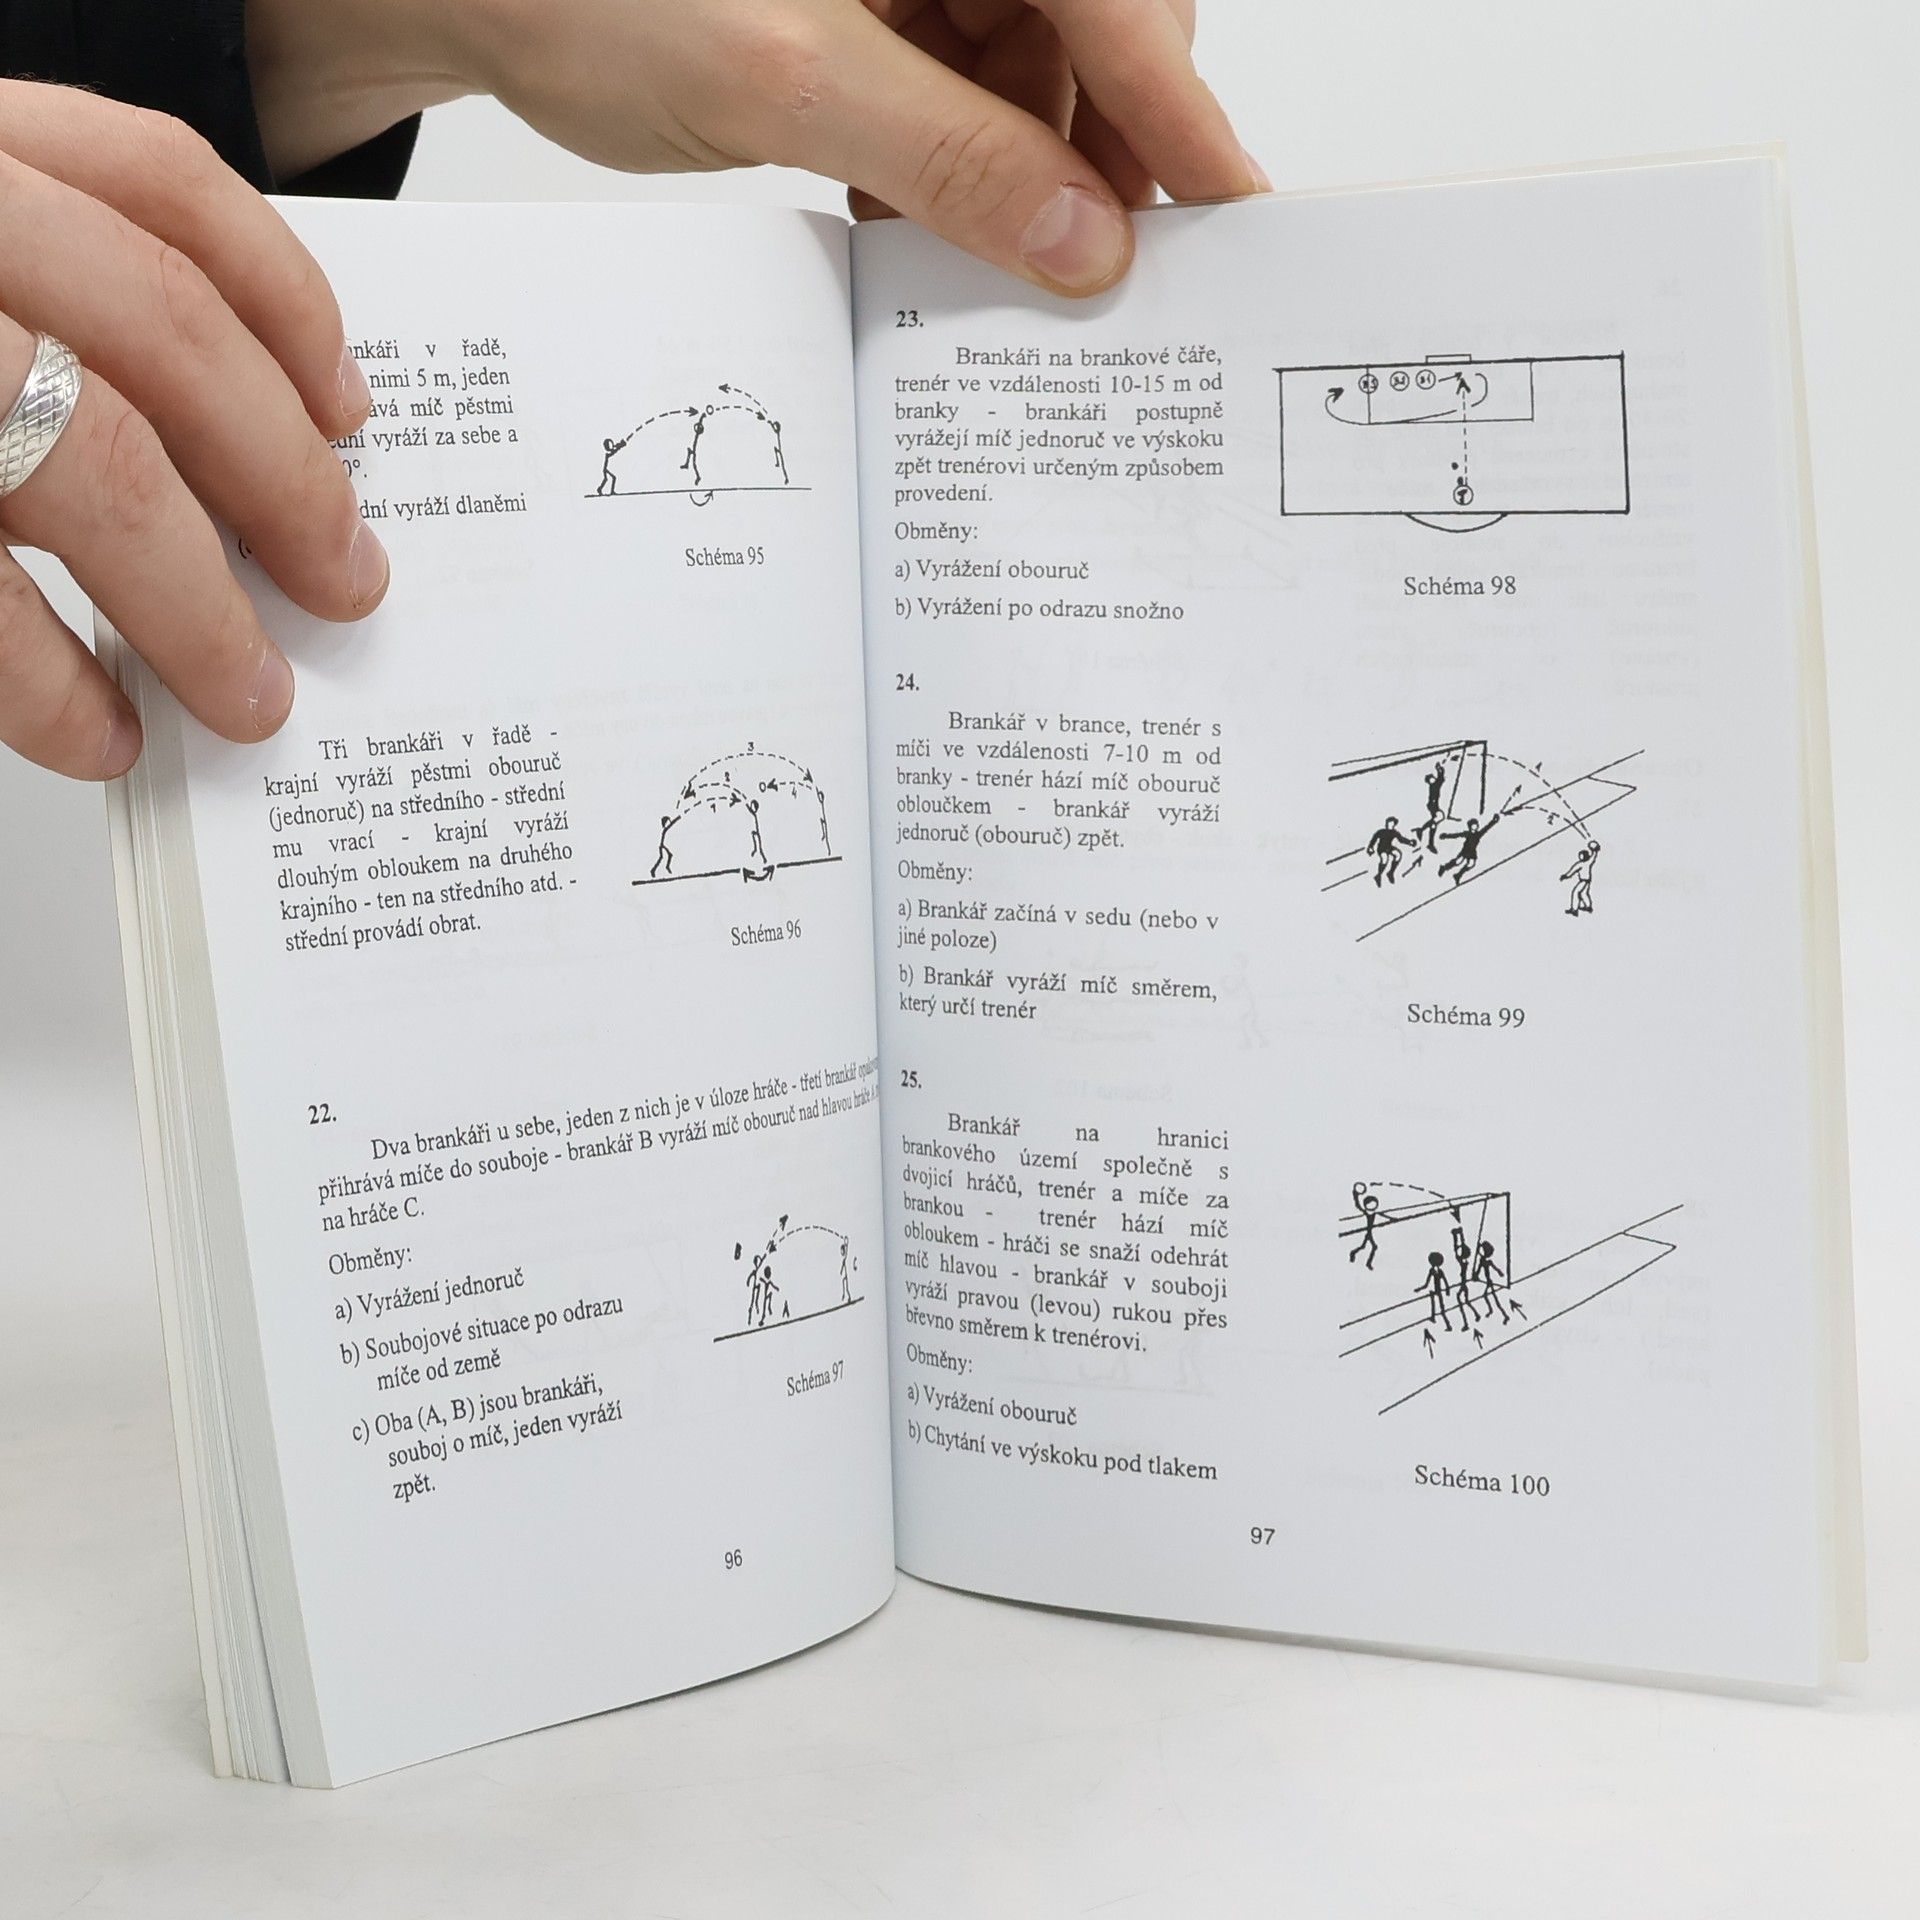 v řadě,
nimi 5 m, jeden
míč pěstmi
vyráží za sebe a
vyráží dlaněmi
Schéma 95
Tři brankáři v řadě -
krajní vyráží pěstmi obouruč
(jednoruč) na středního - střední
mu vrací - krajní vyráží
dlouhým obloukem na druhého
krajního - ten na středního atd. -
střední provádí obrat.
1
2
3
4
Schéma 96
22.
Dva brankáři u sebe, jeden z nich je v úloze hráče - třetí brankář
přihrává míče do souboje - brankář B vyráží míč obouruč nad hlavou hráče A
na hráče C.
Obměny:
a) Vyrážení jednoruč
b) Soubojové situace po odrazu
míče od země
c) Oba (A, B) jsou brankáři,
souboj o míč, jeden vyráží
zpět.
B
C
A
Schéma 97
96
23.
Brankáři na brankové čáře,
trenér ve vzdálenosti 10-15 m od
branky - brankáři postupně
vyrážejí míč jednoruč ve výskoku
zpět trenérovi určeným způsobem
provedení.
Obměny:
a) Vyrážení obouruč
b) Vyrážení po odrazu snožno
T
Schéma 98
24.
Brankář v brance, trenér s
míči ve vzdálenosti 7-10 m od
branky - trenér hází míč obouruč
obloučkem - brankář vyráží
jednoruč (obouruč) zpět.
Obměny:
a) Brankář začíná v sedu (nebo v
jiné poloze)
b) Brankář vyráží míč směrem,
který určí trenér
Schéma 99
25.
Brankář na hranici
brankového území společně s
dvojicí hráčů, trenér a míče za
brankou - trenér hází míč
obloukem - hráči se snaží odehrát
míč hlavou - brankář v souboji
vyráží pravou (levou) rukou přes
břevno směrem k trenérovi.
Obměny:
a) Vyrážení obouruč
b) Chytání ve výskoku pod tlakem
Schéma 100
97